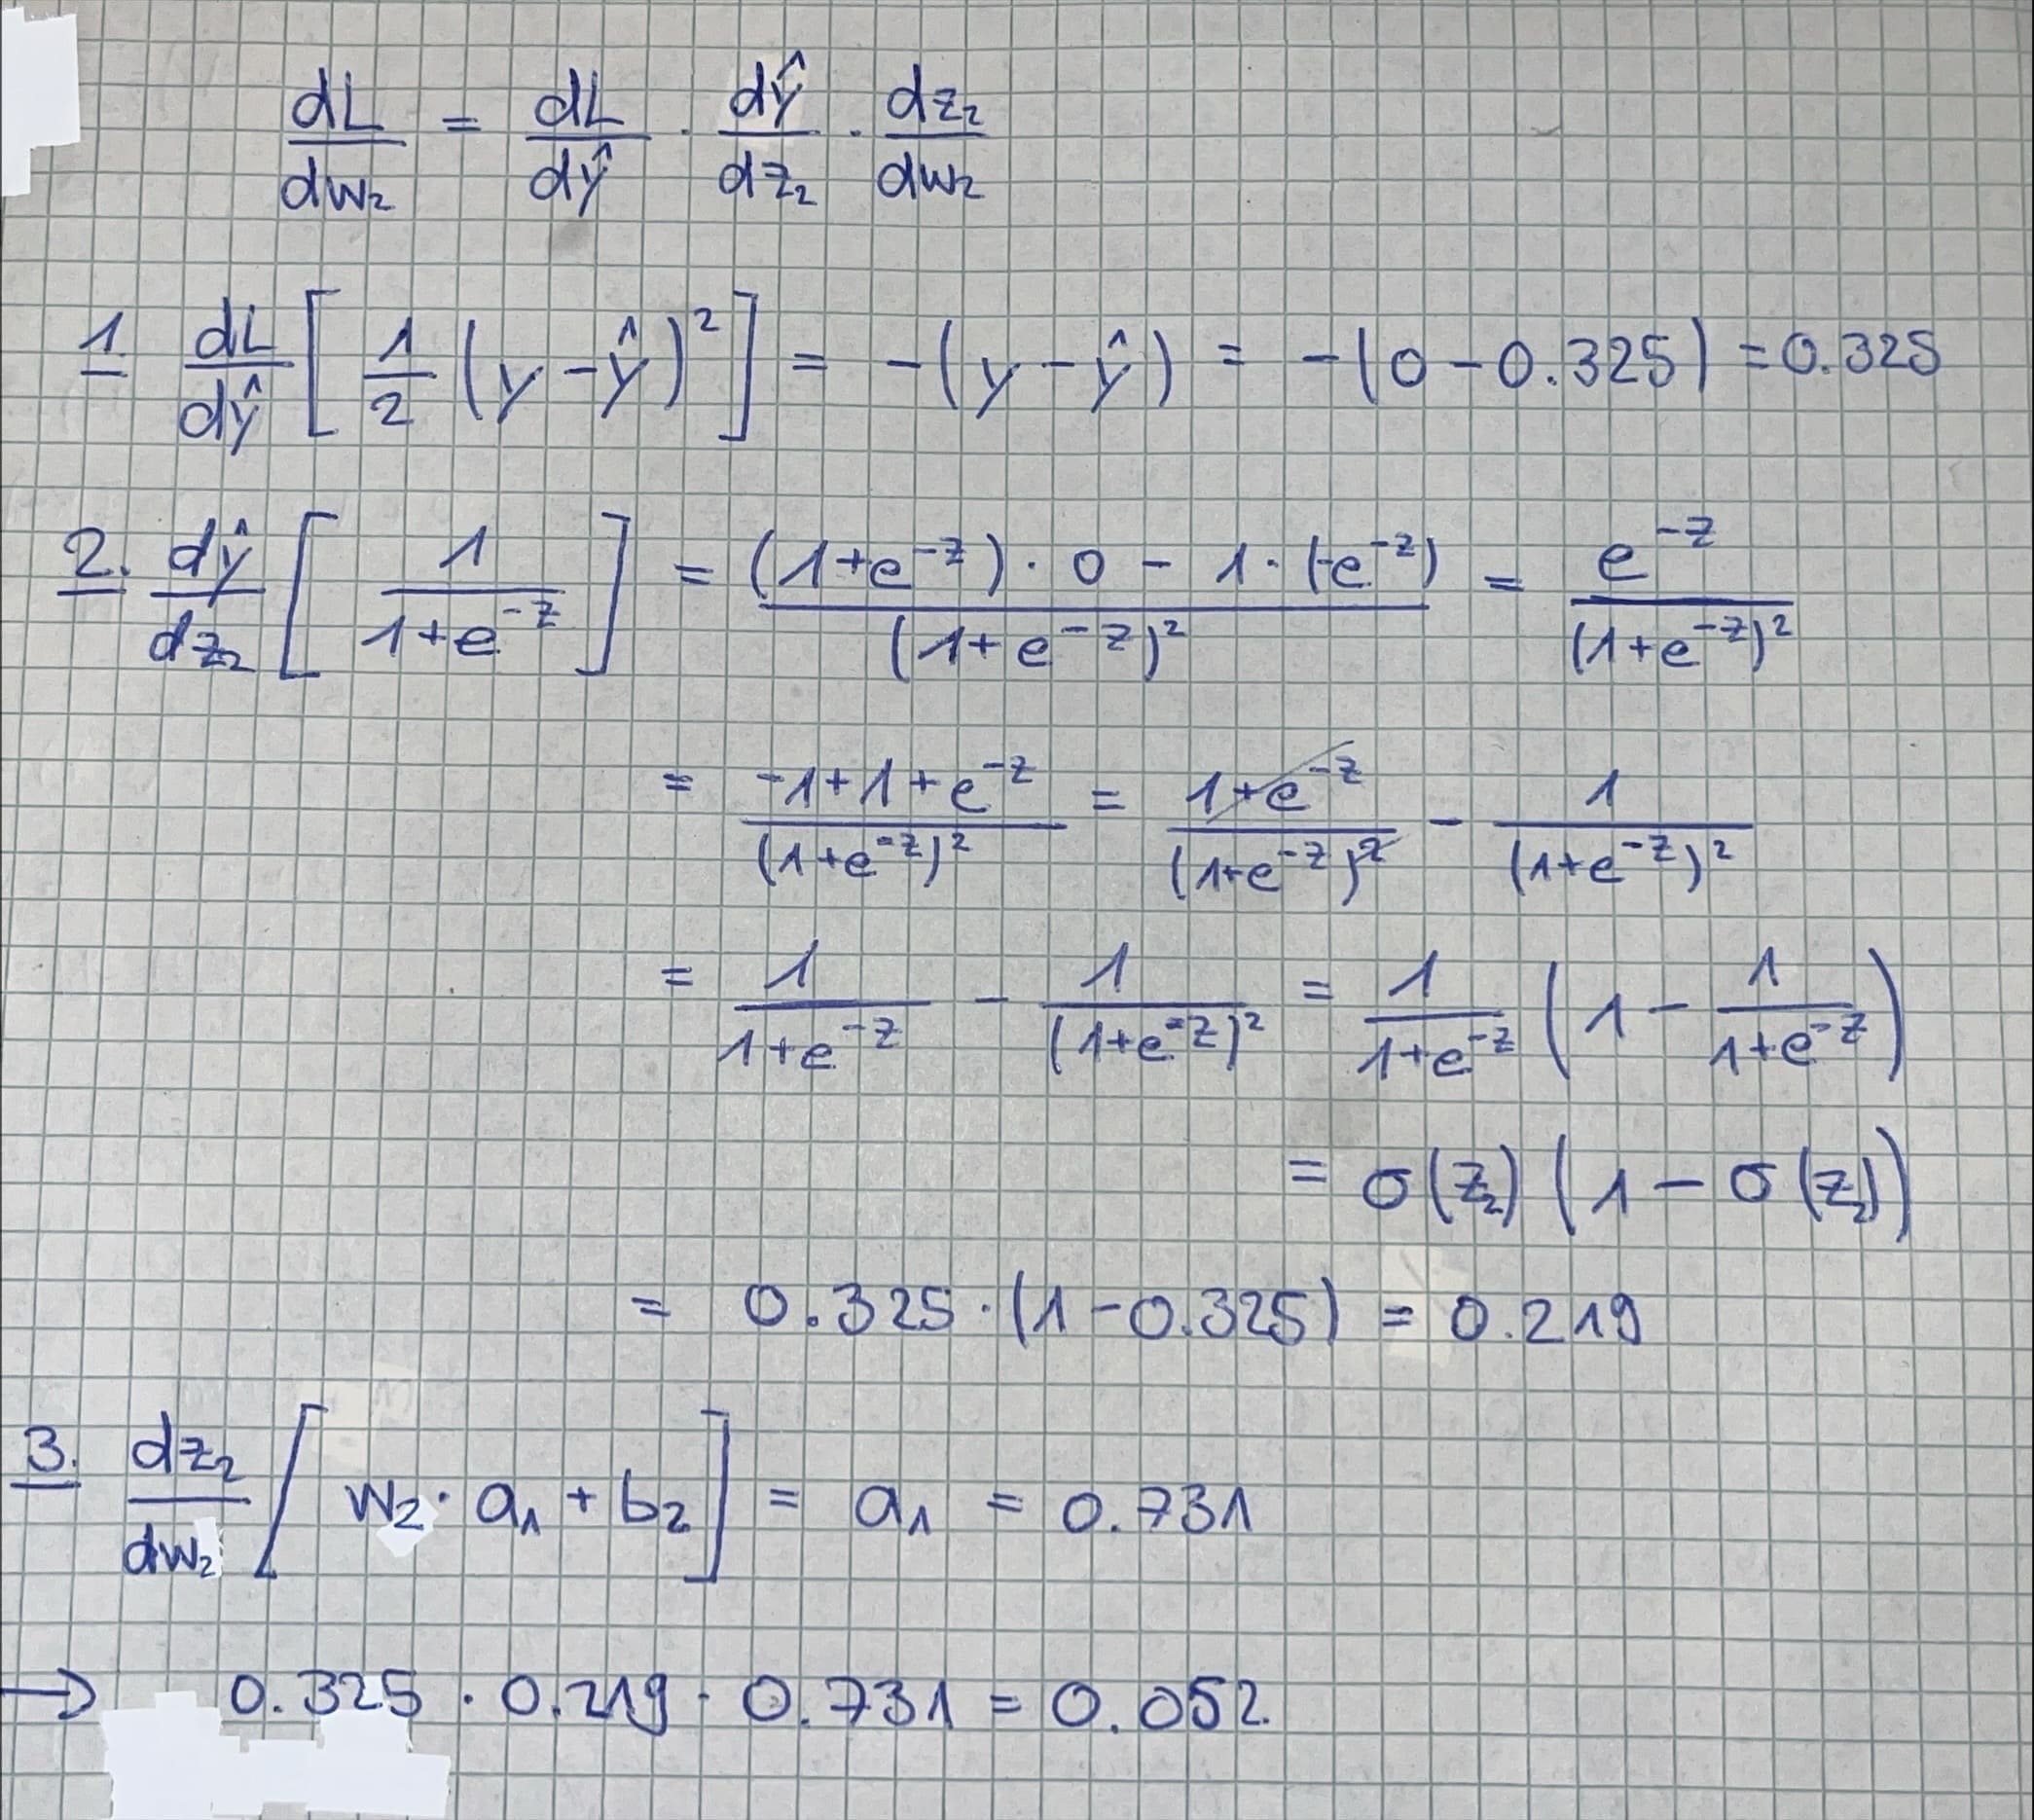 dL/dw₂ = dL/dŷ · dŷ/dz₂ · dz₂/dw₂
1. dL/dŷ [ 1/2 (y - ŷ)² ] = -(y - ŷ) = -(0 - 0.325) = 0.325
2. dŷ/dz₂ [ 1/(1+e^-z) ] = ((1+e^-z) · 0 - 1 · (-e^-z))/(1+e^-z)² = e^-z/(1+e^-z)²
= (-1+1+e^-z)/(1+e^-z)² = (1+e^-z)/(1+e^-z)² - 1/(1+e^-z)²
= 1/(1+e^-z) - 1/(1+e^-z)² = 1/(1+e^-z) (1 - 1/(1+e^-z))
= σ(z₂) (1 - σ(z₂))
= 0.325 · (1 - 0.325) = 0.219
3. dz₂/dw₂ [ w₂ · a₁ + b₂ ] = a₁ = 0.731
→ 0.325 · 0.219 · 0.731 = 0.052